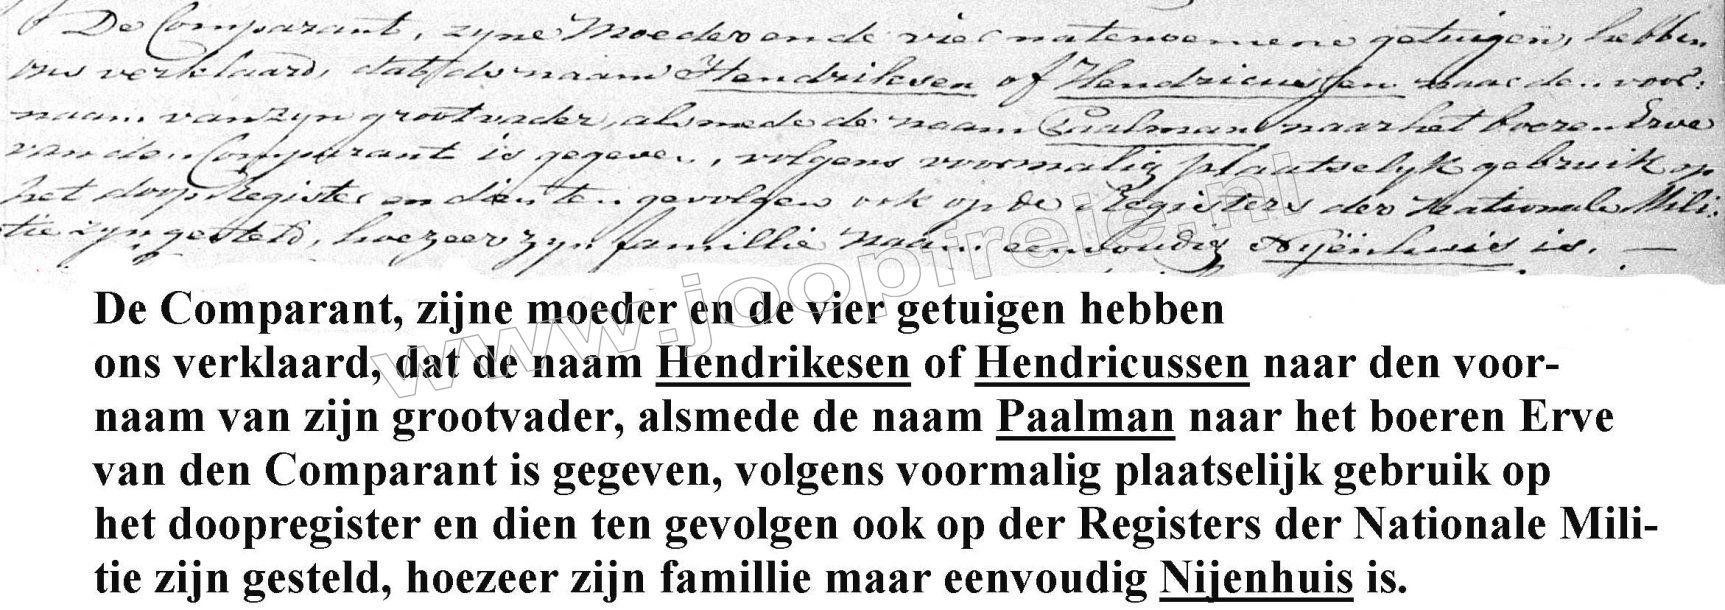 De Comparant, zyne Moeder en de vier natenoemene getuigen, hebben
ons verklaard, dat de naam Hendriksen of Hendricussen naar den voor:
naam van zyn grootvader, alsmede de naam Paalman naar het boeren Erve
van den Comparant is gegeven, volgens voormalig plaatselyk gebruik op
het doop Register en dien ten gevolgen ook op de Registers der Nationale Mili:
tie zyn gesteld, hoezeer zyn famillie naam eenvoudig Nyënhuis is.
www.joopfreie.nl
De Comparant, zijne moeder en de vier getuigen hebben
ons verklaard, dat de naam Hendrikesen of Hendricussen naar den voor-
naam van zijn grootvader, alsmede de naam Paalman naar het boeren Erve
van den Comparant is gegeven, volgens voormalig plaatselijk gebruik op
het doopregister en dien ten gevolgen ook op der Registers der Nationale Mili-
tie zijn gesteld, hoezeer zijn famillie maar eenvoudig Nijenhuis is.